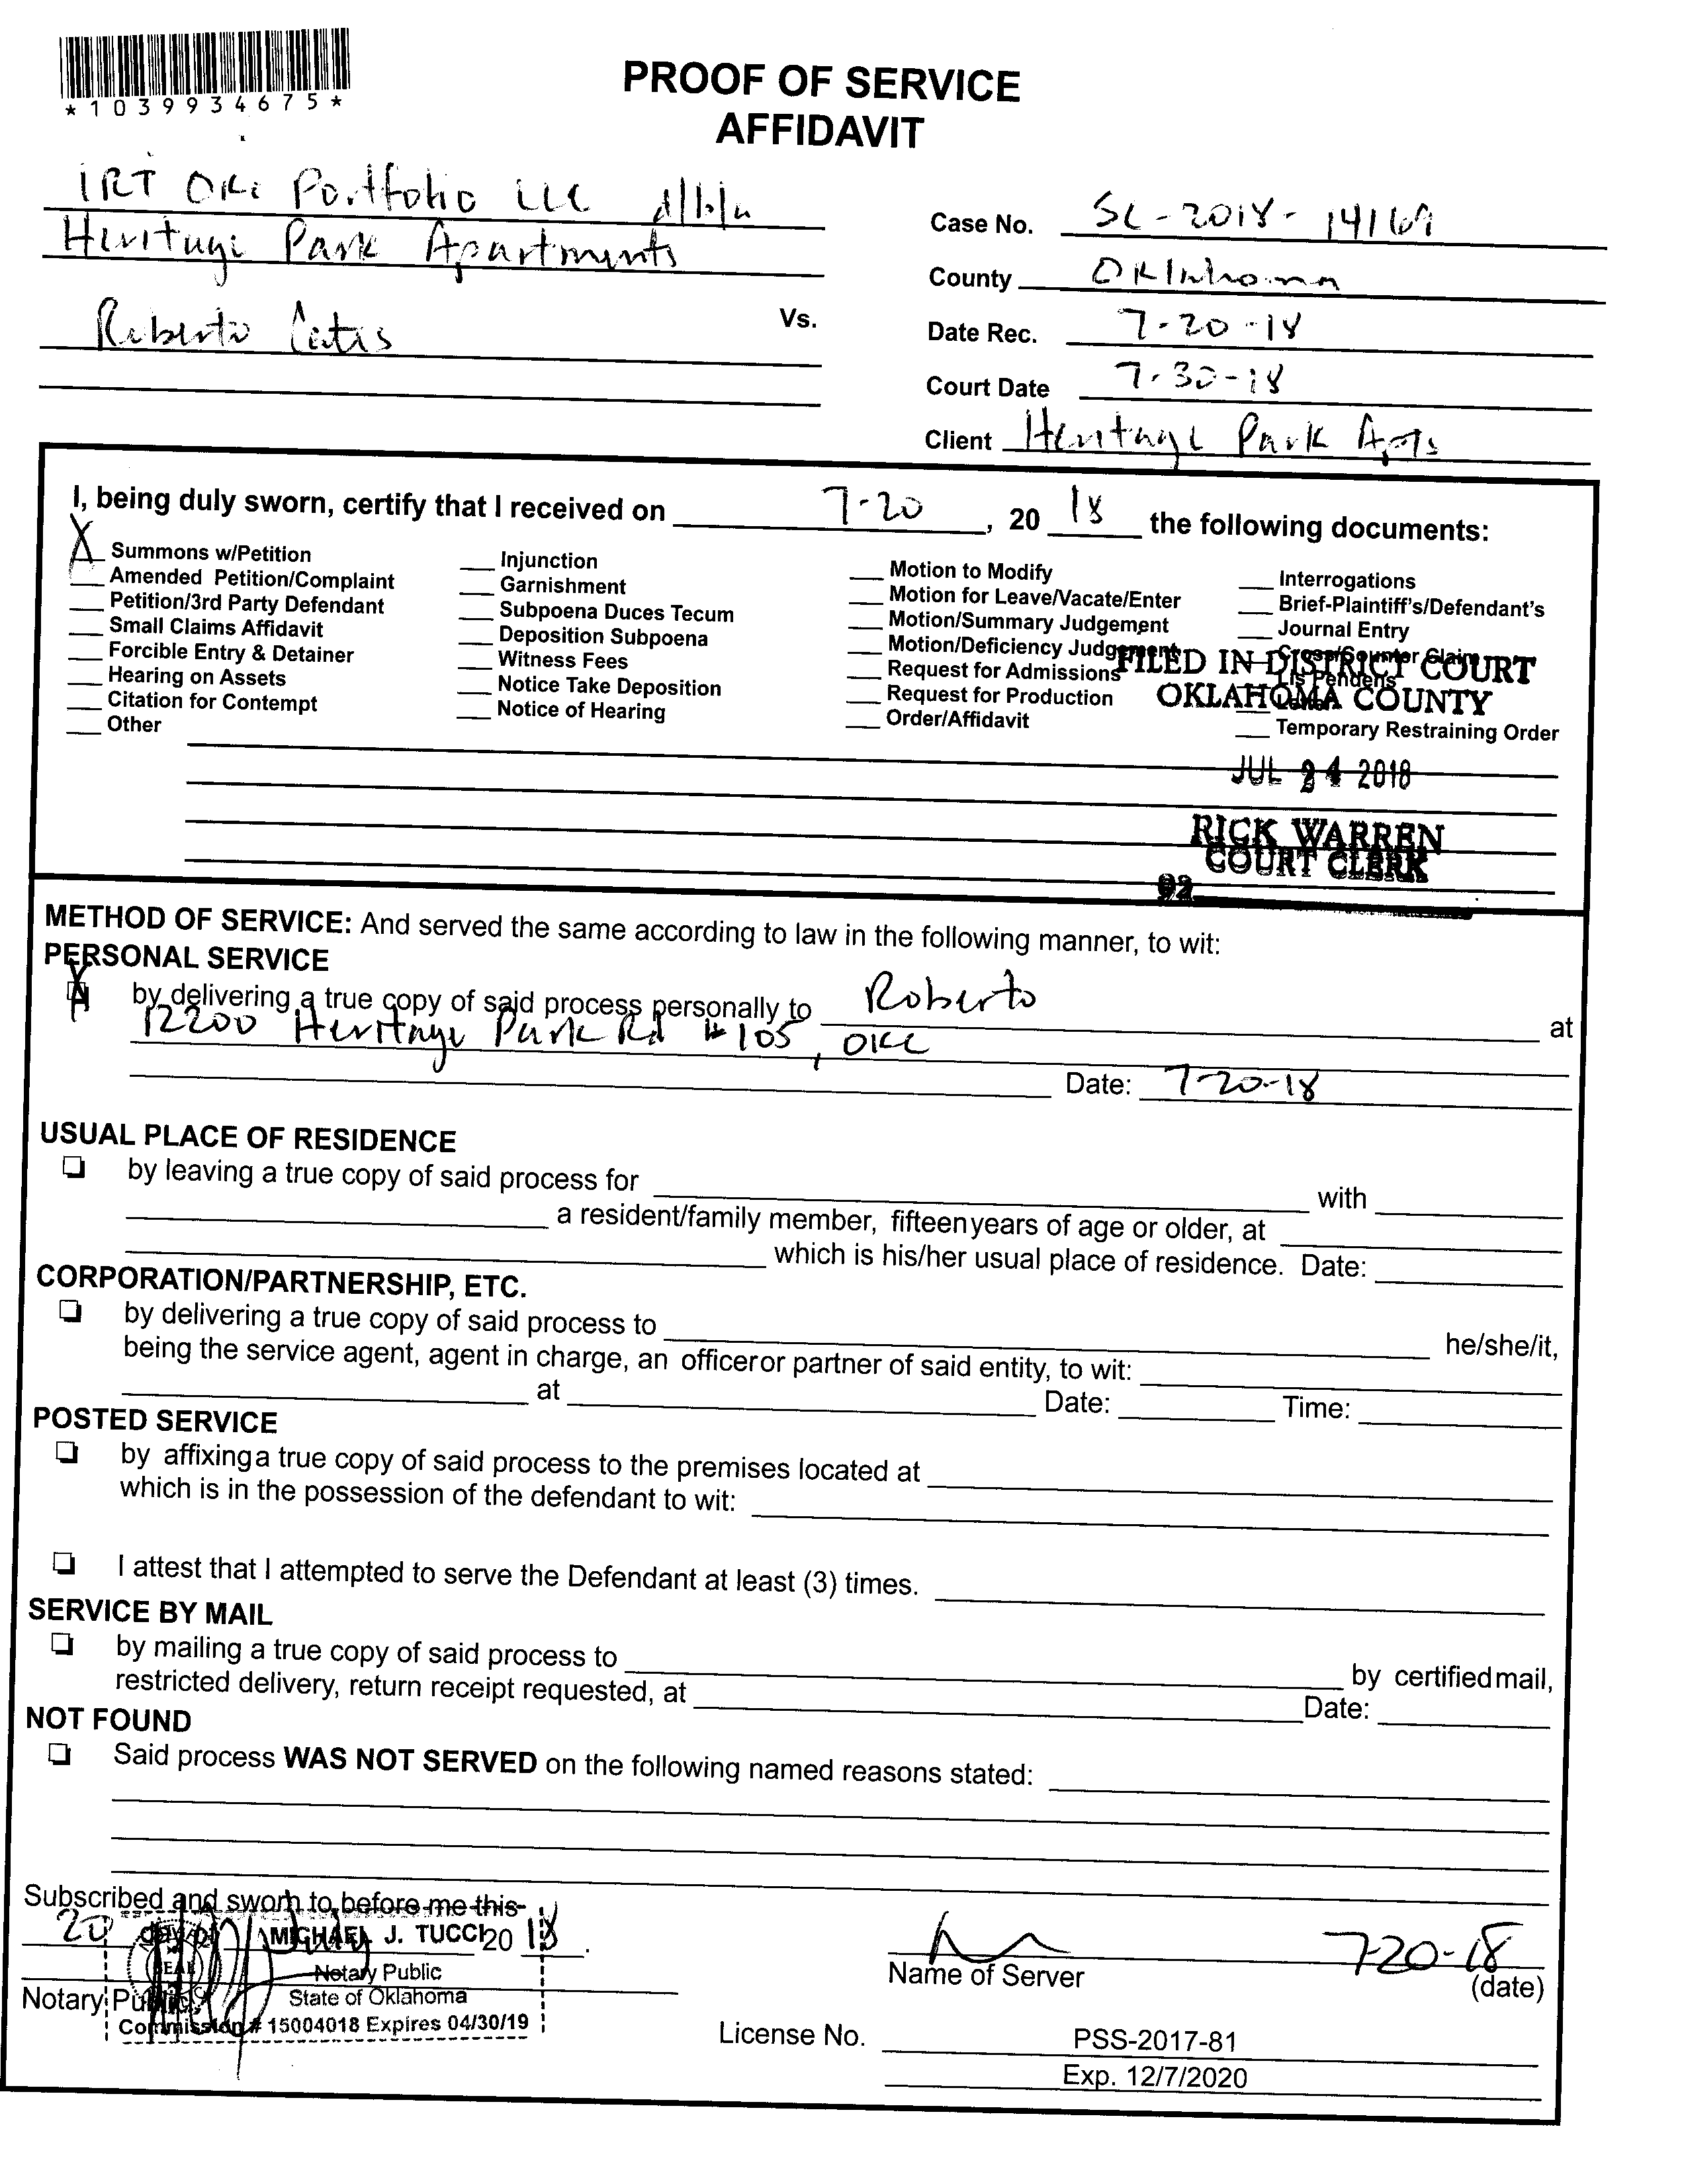 *1039934675*
PROOF OF SERVICE
AFFIDAVIT
IRT OKC Portfolio LLC d/b/a
Heritage Park Apartments
Vs.
Roberto
Case No. SC-2018-14169
County Oklahoma
Date Rec. 7-20-18
Court Date 7-30-18
Client Heritage Park Apts
I, being duly sworn, certify that I received on 7-20, 20 18 the following documents:
X Summons w/Petition
Amended Petition/Complaint
Petition/3rd Party Defendant
Small Claims Affidavit
Forcible Entry & Detainer
Hearing on Assets
Citation for Contempt
Other
Injunction
Garnishment
Subpoena Duces Tecum
Deposition Subpoena
Witness Fees
Notice Take Deposition
Notice of Hearing
Motion to Modify
Motion for Leave/Vacate/Enter
Motion/Summary Judgement
Motion/Deficiency Judgement
Request for Admissions
Request for Production
Order/Affidavit
Interrogations
Brief-Plaintiff's/Defendant's
Journal Entry
Cross/Counter Claim
Lis Pendens
Temporary Restraining Order
FILED IN DISTRICT COURT
OKLAHOMA COUNTY
JUL 24 2018
RICK WARREN
COURT CLERK
METHOD OF SERVICE: And served the same according to law in the following manner, to wit:
PERSONAL SERVICE
X by delivering a true copy of said process personally to Roberto at
12200 Heritage Park Rd #105, OKC
Date: 7-20-18
USUAL PLACE OF RESIDENCE
by leaving a true copy of said process for with
a resident/family member, fifteen years of age or older, at
which is his/her usual place of residence. Date:
CORPORATION/PARTNERSHIP, ETC.
by delivering a true copy of said process to he/she/it,
being the service agent, agent in charge, an officer or partner of said entity, to wit:
at Date: Time:
POSTED SERVICE
by affixing a true copy of said process to the premises located at
which is in the possession of the defendant to wit:
I attest that I attempted to serve the Defendant at least (3) times.
SERVICE BY MAIL
by mailing a true copy of said process to by certified mail,
restricted delivery, return receipt requested, at Date:
NOT FOUND
Said process WAS NOT SERVED on the following named reasons stated:
Subscribed and sworn to before me this
20 day of July 20 18.
Notary Public
MICHAEL J. TUCCI
Notary Public
State of Oklahoma
Commission # 15004018 Expires 04/30/19
SEAL
Name of Server
7-20-18
(date)
License No. PSS-2017-81
Exp. 12/7/2020